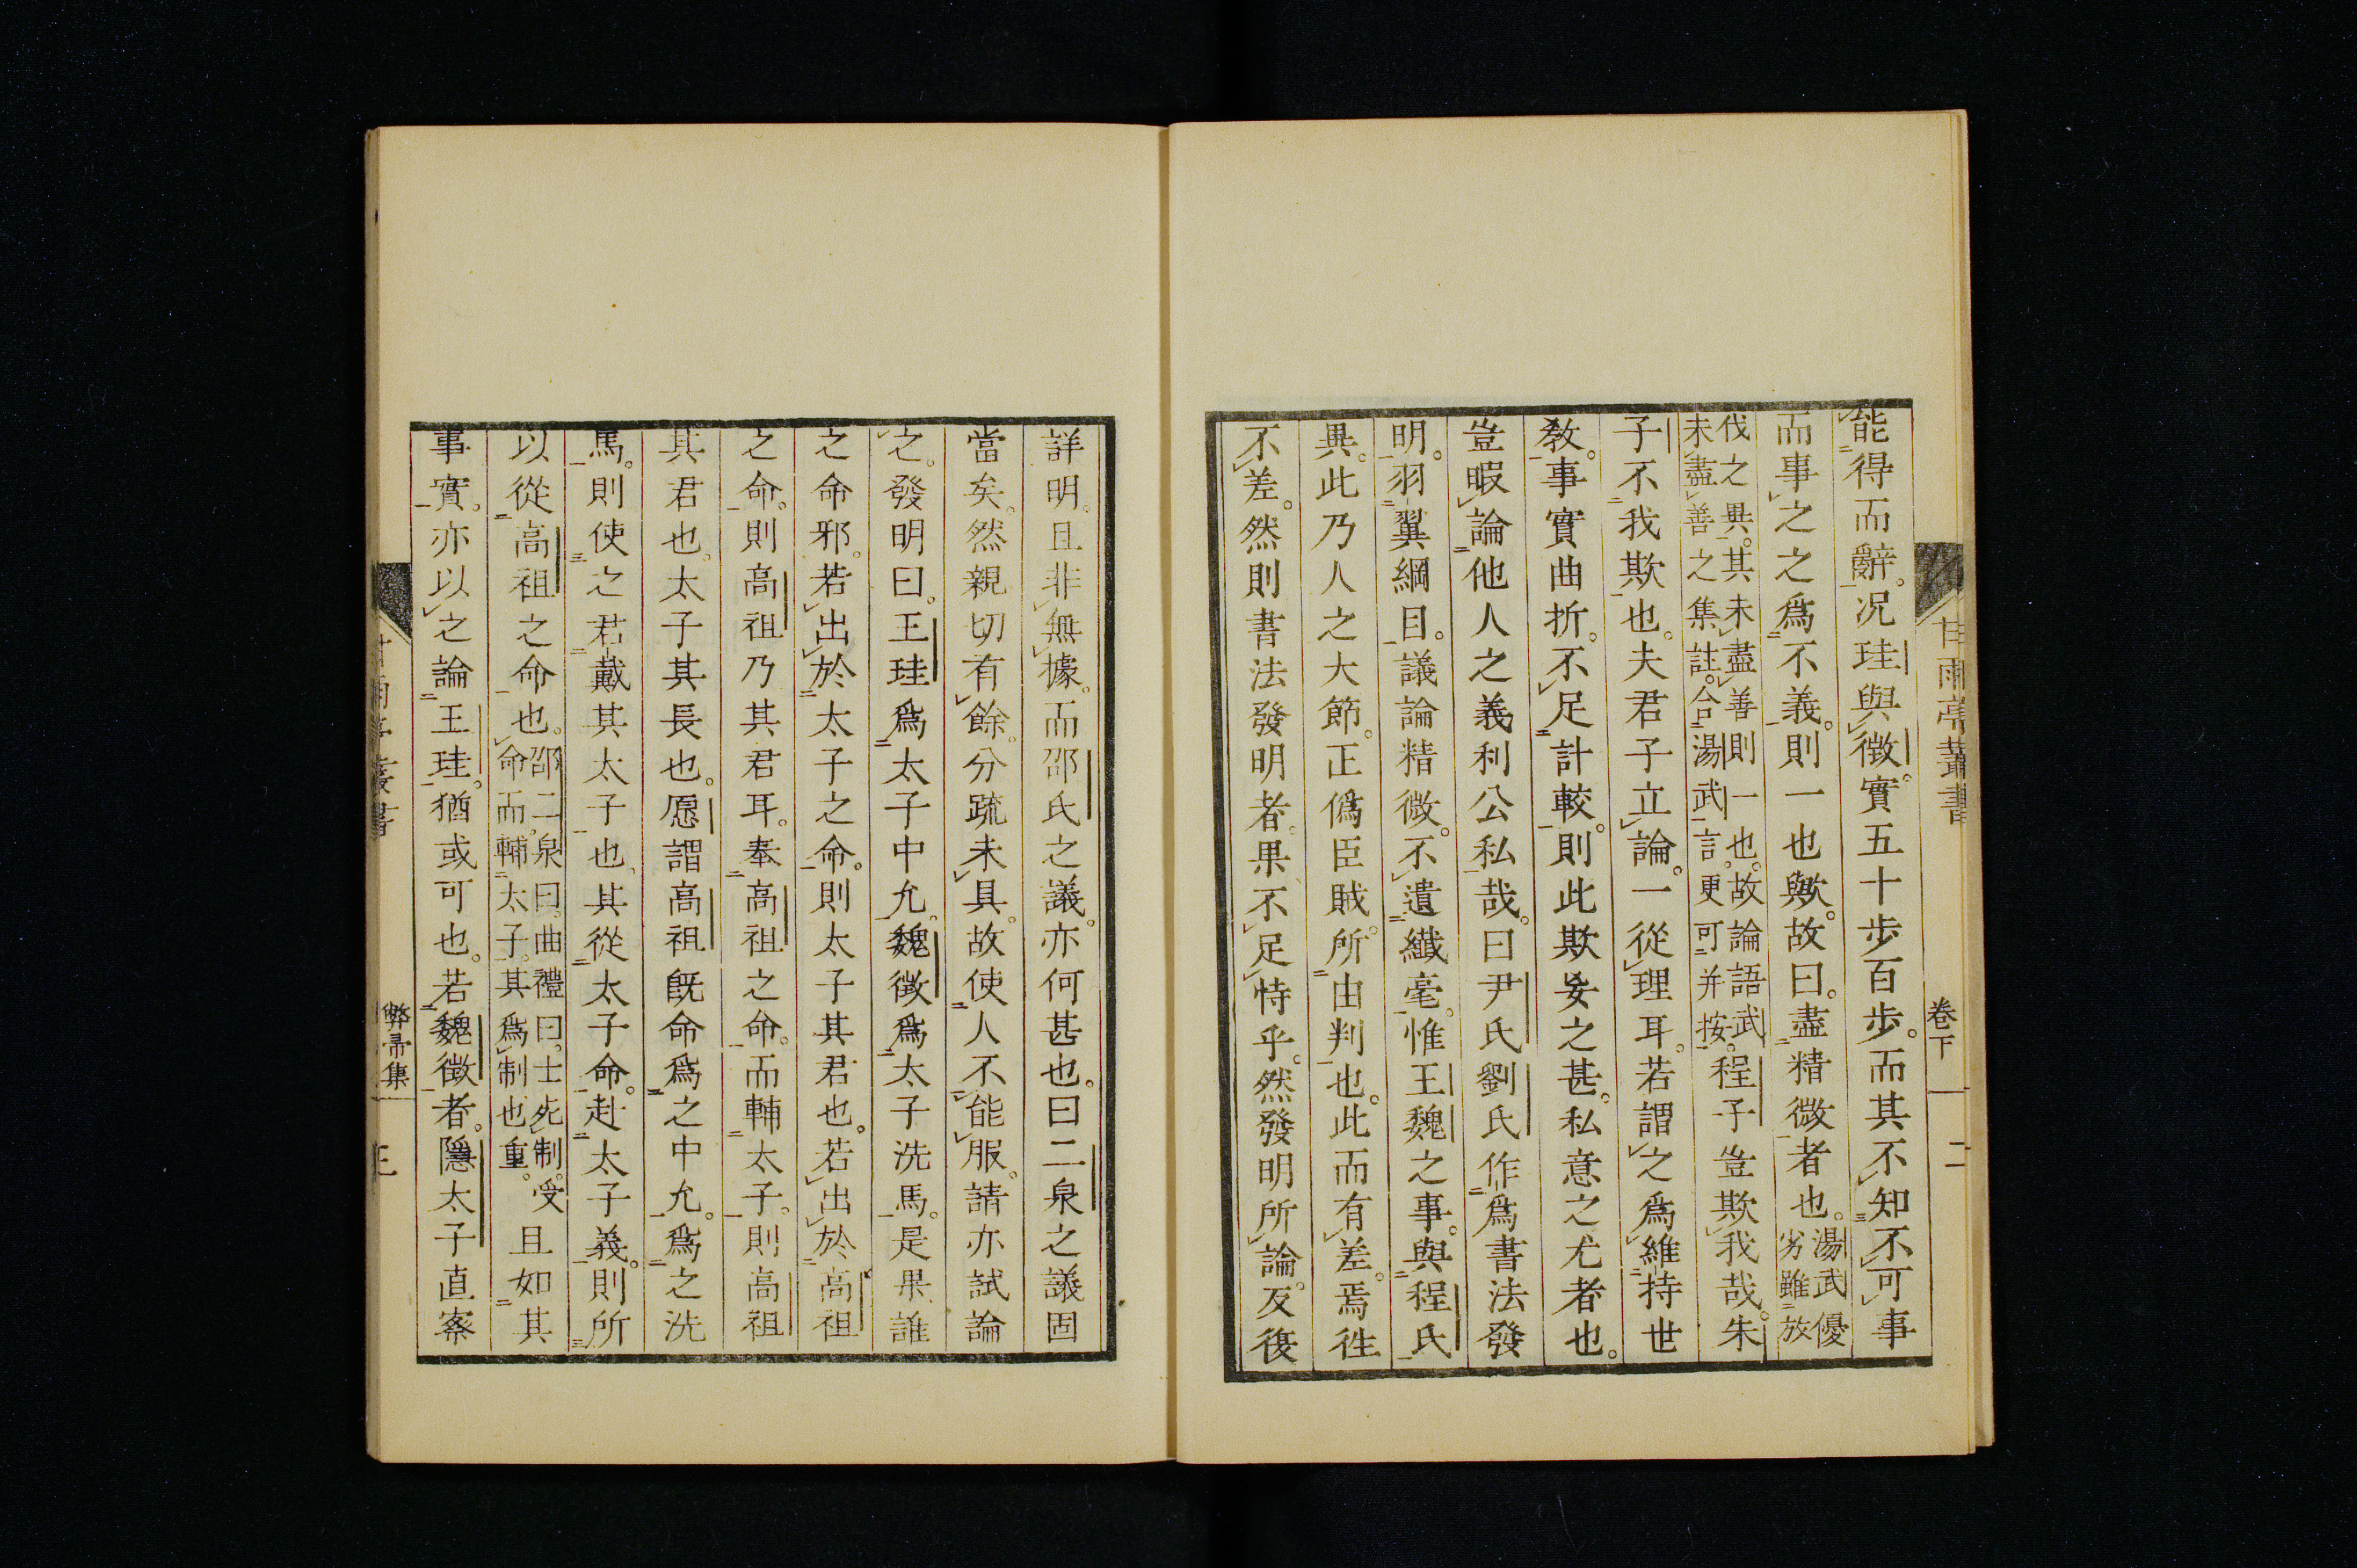 甘雨亭叢書 卷下 二
能得而辭。况珪與徵。實五十步百步。而其不知不可事
而事之之爲不義。則一也歟。故曰。盡精微者也。湯武優劣雖放
伐之異。其未盡善則一也。故論語武未盡善之集註。合湯武言。更可并按。程子豈欺我哉。朱
子不我欺也。夫君子立論。一從理耳。若謂之爲維持世
教。事實曲折。不足計較。則此欺妄之甚。私意之尤者也。
豈暇論他人之義利公私哉。曰尹氏劉氏作爲書法發
明。羽翼綱目。議論精微。不遺纖毫。惟王魏之事。與程氏
異。此乃人之大節。正僞臣賊。所由判也。此而有差。焉徃
不差。然則書法發明者。果不足恃乎。然發明所論。反復
詳明。且非無據。而邵氏之議。亦何甚也。曰二泉之議固
當矣。然親切有餘。分疏未具。故使人不能服。請亦試論
之。發明曰。王珪爲太子中允。魏徵爲太子洗馬。是果誰
之命邪。若出於太子之命。則太子其君也。若出於高祖
之命。則高祖乃其君耳。奉高祖之命。而輔太子。則高祖
其君也。太子其長也。愿謂高祖旣命爲之中允。爲之洗
馬。則使之君戴其太子也。其從太子命。赴太子義。則所
以從高祖之命也。邵二泉曰。曲禮曰。士死制。受命而輔太子。其爲制也重。且如其
事實。亦以之論王珪。猶或可也。若魏徵者。隱太子直寮
甘雨亭叢書 弊帚集 三